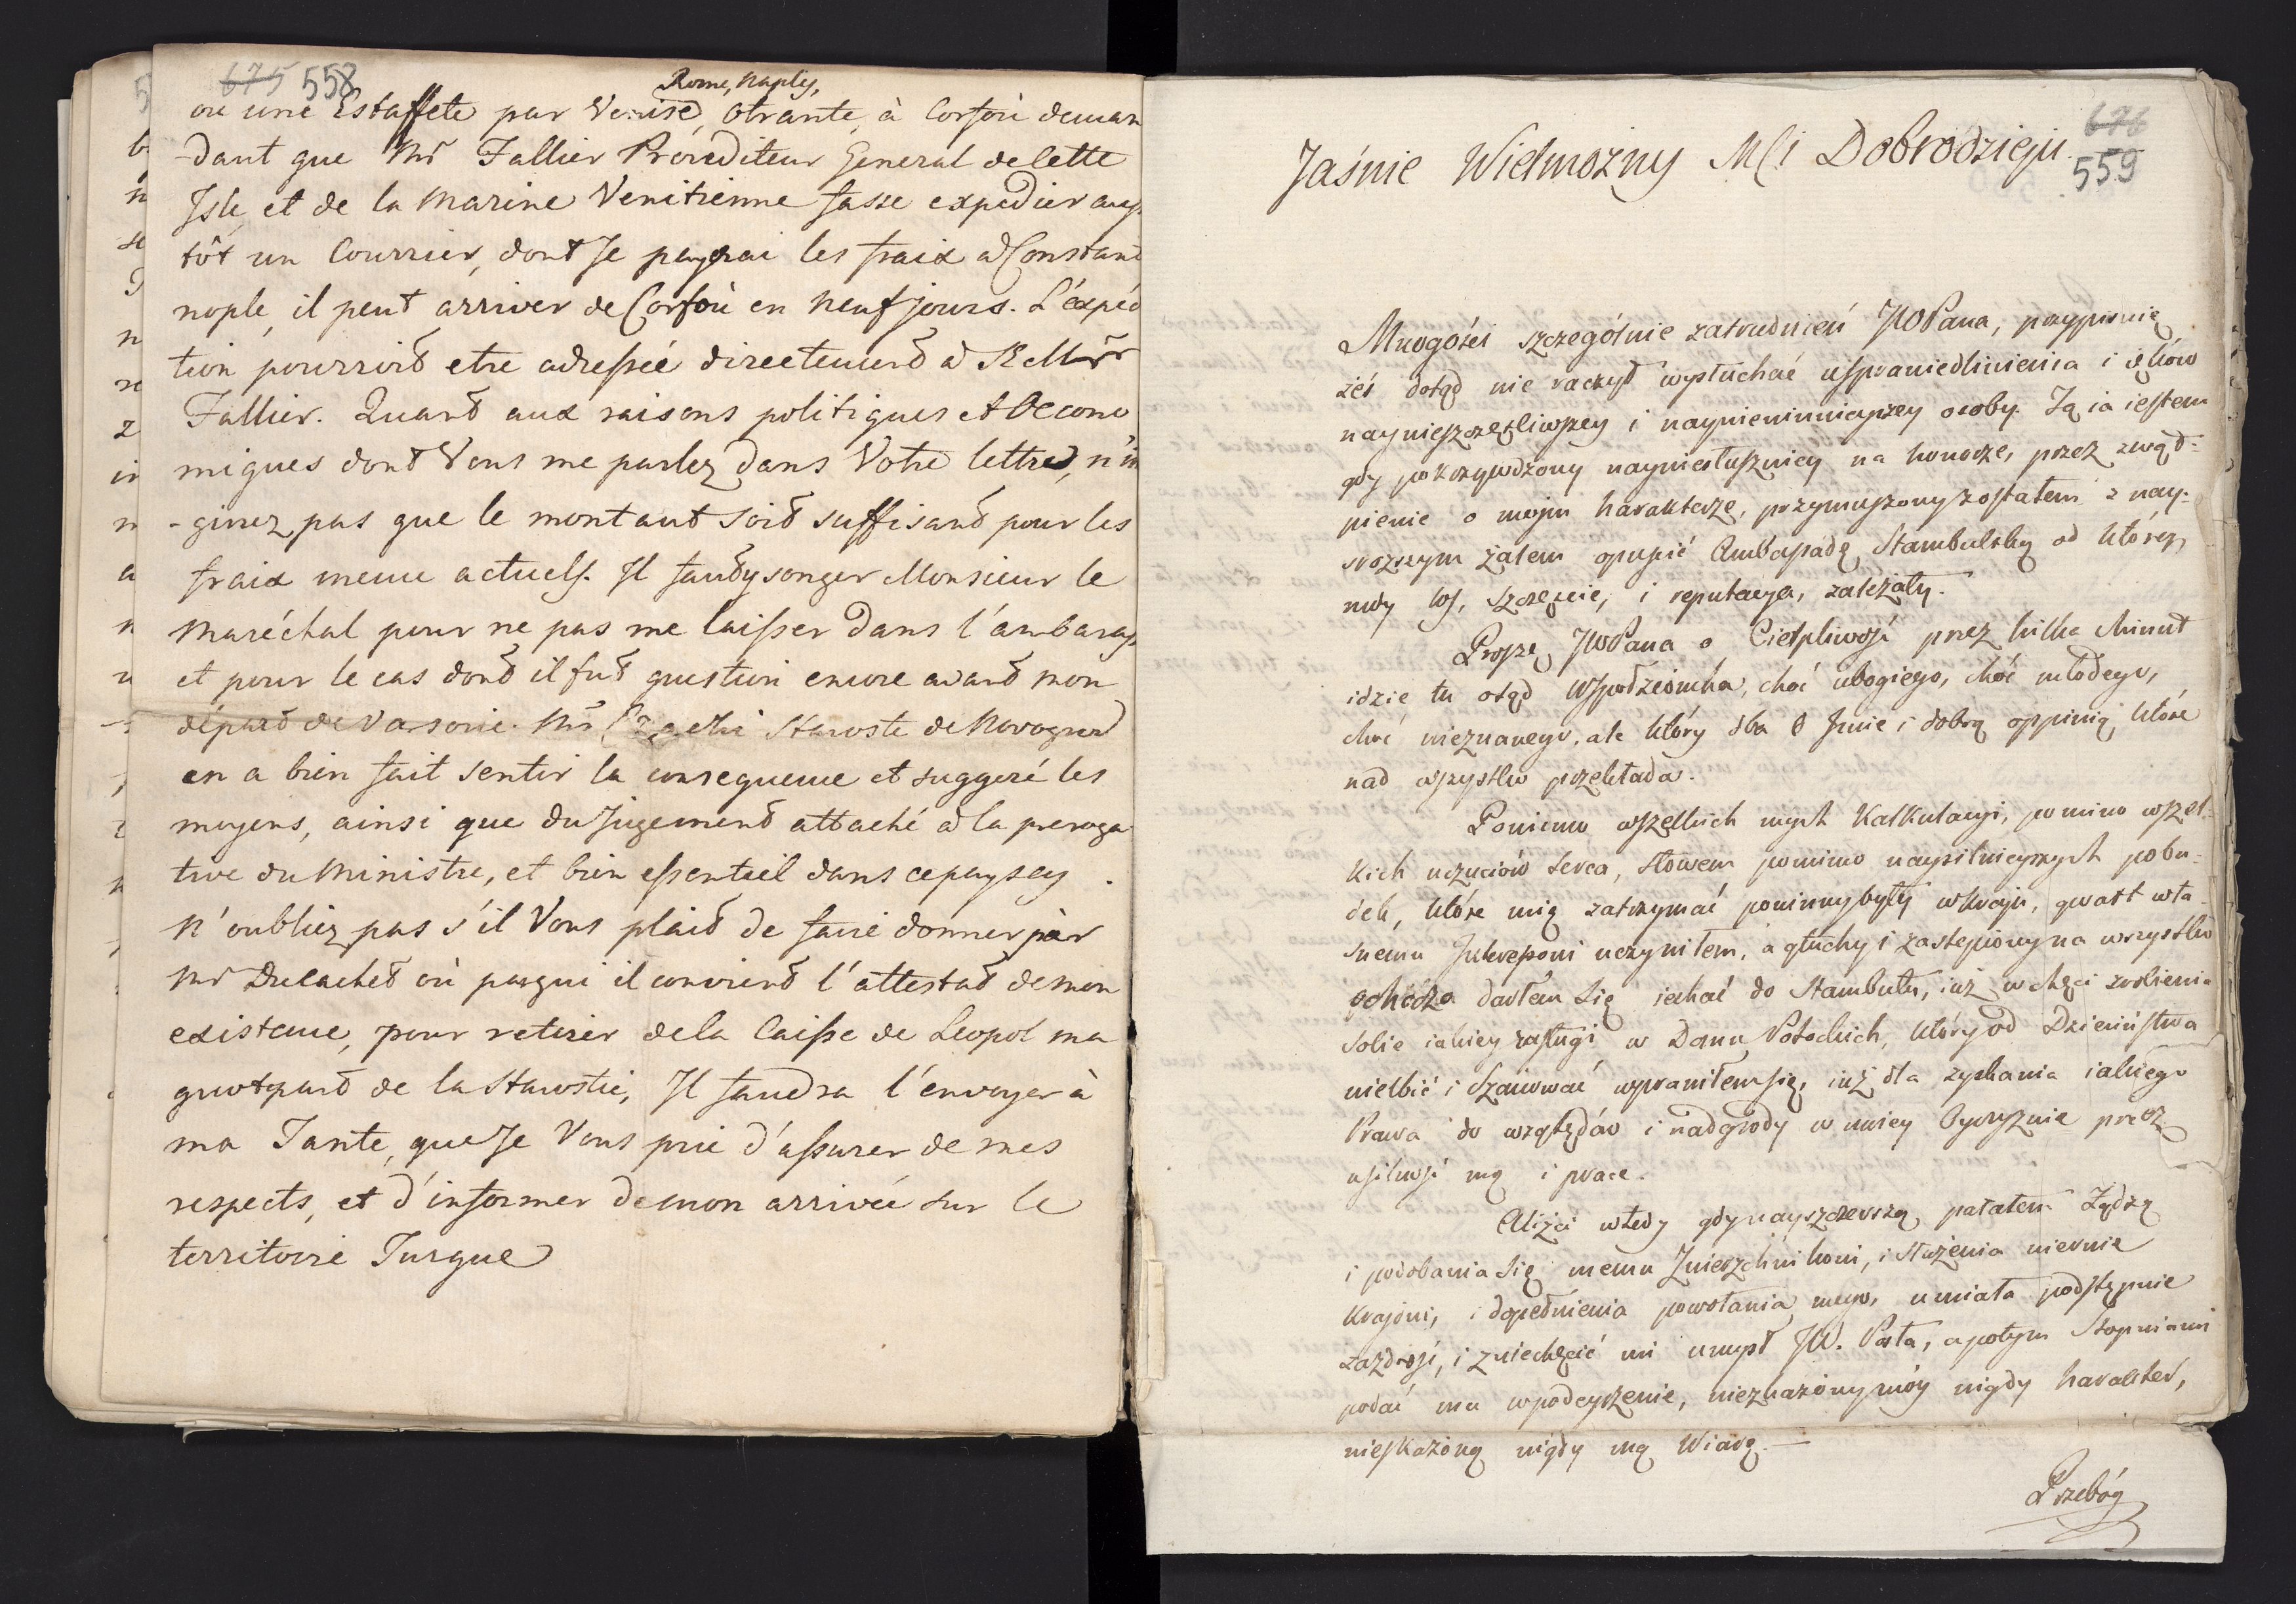 675 558
Rome, Naples,
ou une Estaffete par Venise, Otrante, à Corfou deman
-dant que Mr Fallier Prorediteur General de cette
Isle et de la Marine Venitienne fasse expedier aus
tôt un Courrier, dont Je payerai les fraix à Constanti
nople, il peut arriver de Corfou en neuf jours. L'éxpéd
tion pourroit etre adressée directement à Mr
Fallier. Quant aux raisons politiques et Oecono
miques dont Vous me parlez dans Votre lettre, n'im
-ginez pas que le montant soit suffisant pour les
fraix meme actuels. Il faut y songer Monsieur le
Maréchal pour ne pas me laisser dans l'ambaras,
et pour le cas dont il fut question encore avant mon
départ de Varsovie. Mr Czacki Staroste de Novogrod
en a bien fait sentir la consequence et suggeré les
moyens, ainsi que du Jugement attaché à la preroga
tive du Ministre, et bien essentiel dans ce pays cy.
N'oubliez pas s'il Vous plait de faire donner par
Mr Ducachet où par qui il convient l'attestat de mon
existence, pour retirer de la Caisse de Leopol ma
quotepart de la Starostie, Il faudra l'envoyer à
ma Tante, que Je Vous prie d'assurer de mes
respects, et d'informer de mon arrivée sur le
territoire Turque
676
559
Jaśnie Wielmożny Mci Dobrodzieju.
Mnogości szczególnie zatrudnień JWPana, przypisuię
żeś dotąd nie raczył wysłuchać usprawiedliwienia i ięków
naynieszczęśliwszey i nayniewinnieyszey osoby. Tą ia iestem
gdy pokrzywdzony nayniesłuszniey na honorze, przez zwąt-
pienie o mojm harakterze, przymuszony zostałem z nay-
sroższym żalem opuścić Ambassadę Stambulską od którey
móy los, szczęście, i reputacya, zależały.
Proszę JWPana o Cierpliwość przez kilka Minut
idzie tu o sąd Wspołziomka, choć ubogiego, choć młodego,
choć nieznanego, ale który dba o Jmie i dobrą oppinią, które
nad wszystko przekłada.
Pomimo wszelkich mych Kalkulacyi, pomimo wszel-
kich uczuciów serca, słowem pomimo naysilnieyszych pobu-
dek, które mię zatrzymać powinny były w kraju, gwałt wła-
snemu Jnteressowi uczyniłem, a głuchy i zaślepiony na wszystko
ochoczo darłem się jechać do Stambułu, iuż w chęci zrobienia
sobie iakiey zasługi w Domu Potockich, który od Dzieciństwa
wielbić i Szanować wprawiłem się, iuż dla zyskania iakiego
Prawa do względów i nadgrody w moiey Oyczyznie przez
usilność mą i prace.
Aliżci wtedy gdy nayszczerszą pałałem Żądzą
i podobania Się memu Zwierzchnikowi, i Służenia wiernie
Krajowi, i dopełnienia powołania mego, umiała podstępnie
zazdrość, i zniechęcić mi umysł JW. Posła, a potym Stopniami
podać mu w podeyrzenie, nieznażony móy nigdy harakter,
nieskażoną nigdy mą Wiarę. —
Przebóg